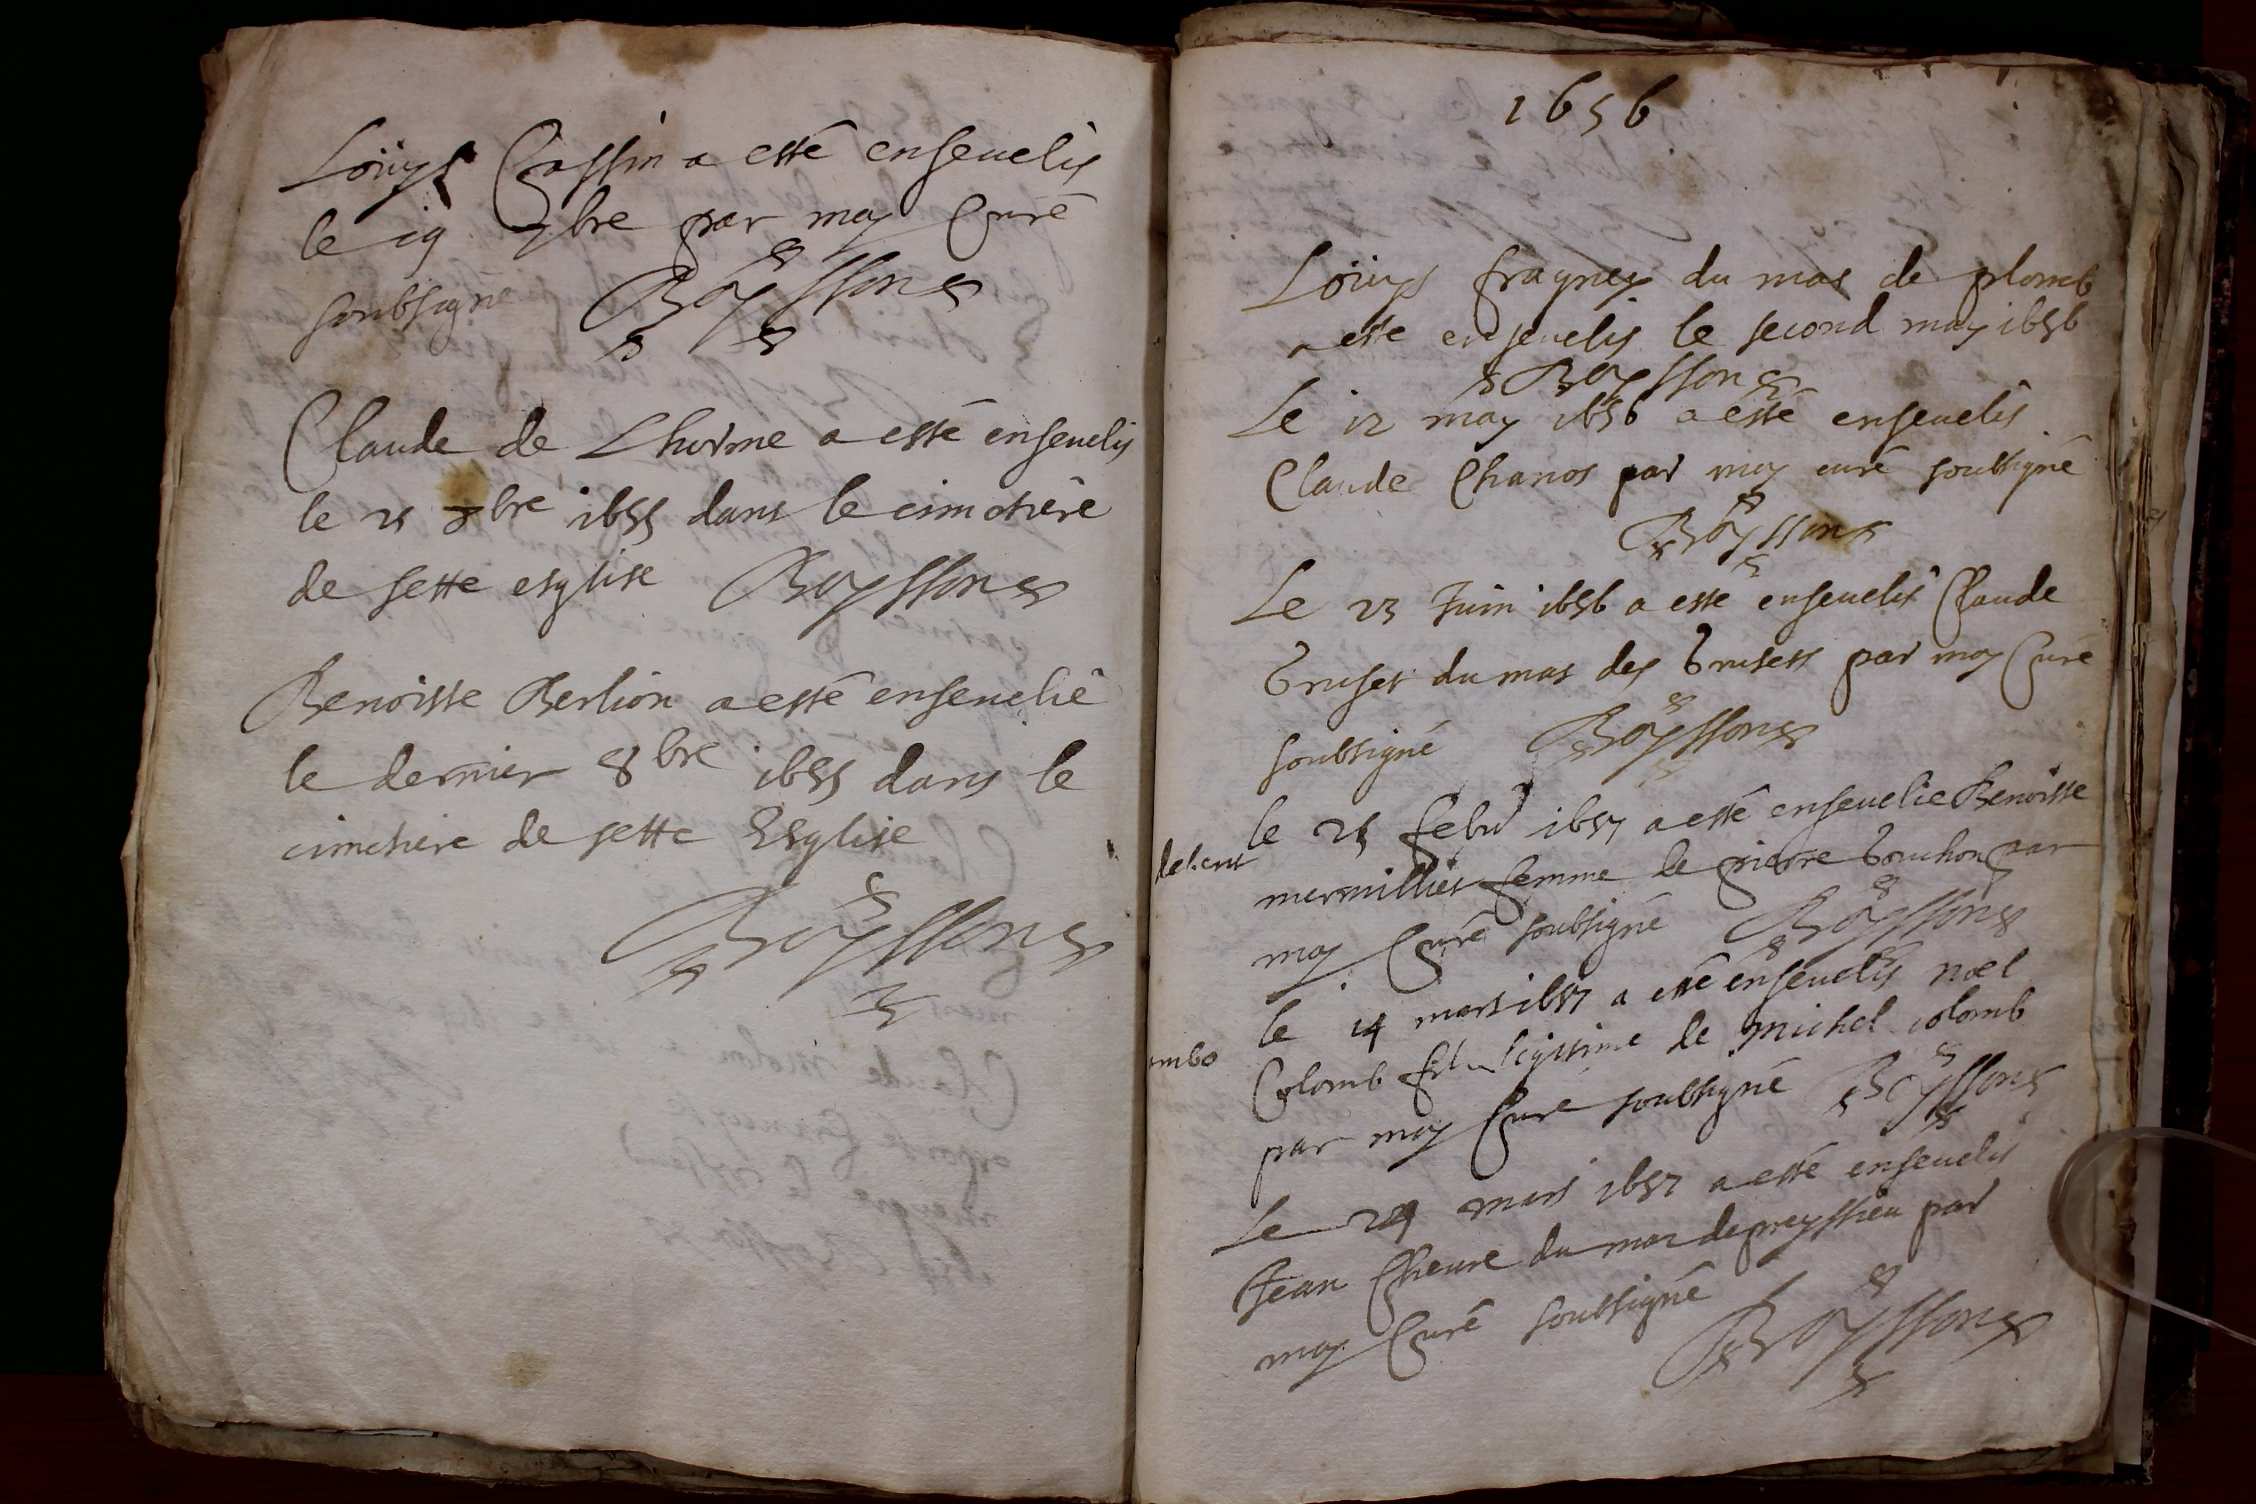 Loüys Cassin a esté enseuelis
le 19 7bre par moy Curé
soubsigne Boyssons
Claude de Lhorme a esté enseuelis
le 21 8bre 1655 dans le cimetiere
de sette esglise Boyssons
Benoiste Berlion a esté enseuelie
le dernier 8bre 1655 dans le
cimetiere de sette Esglise
Boyssons
1656
Loüys fragney du mas de plomb
a esté enseuelis le second may 1656
Boyssons
Le 12 may 1656 a esté enseuelis
Claude Chanos par moy curé soubsigné
Boyssons
Le 23 Juin 1656 a esté enseuelis Claude
bruset du mas des brusets par moy Curé
soubsigné Boyssons
le 25 febr 1657 a esté enseuelie Benoiste
mermillies femme de pierre bouchon par
moy Curé soubsigné Boyssons
le 14 mars 1657 a esté enseuelis noel
Colomb fil legitime de michel colomb
par moy Curé soubsigné Boyssons
Le 29 mars 1657 a esté enseuelis
Jean Cheure du mas de preyssieu par
moy Curé soubsigné
Boyssons